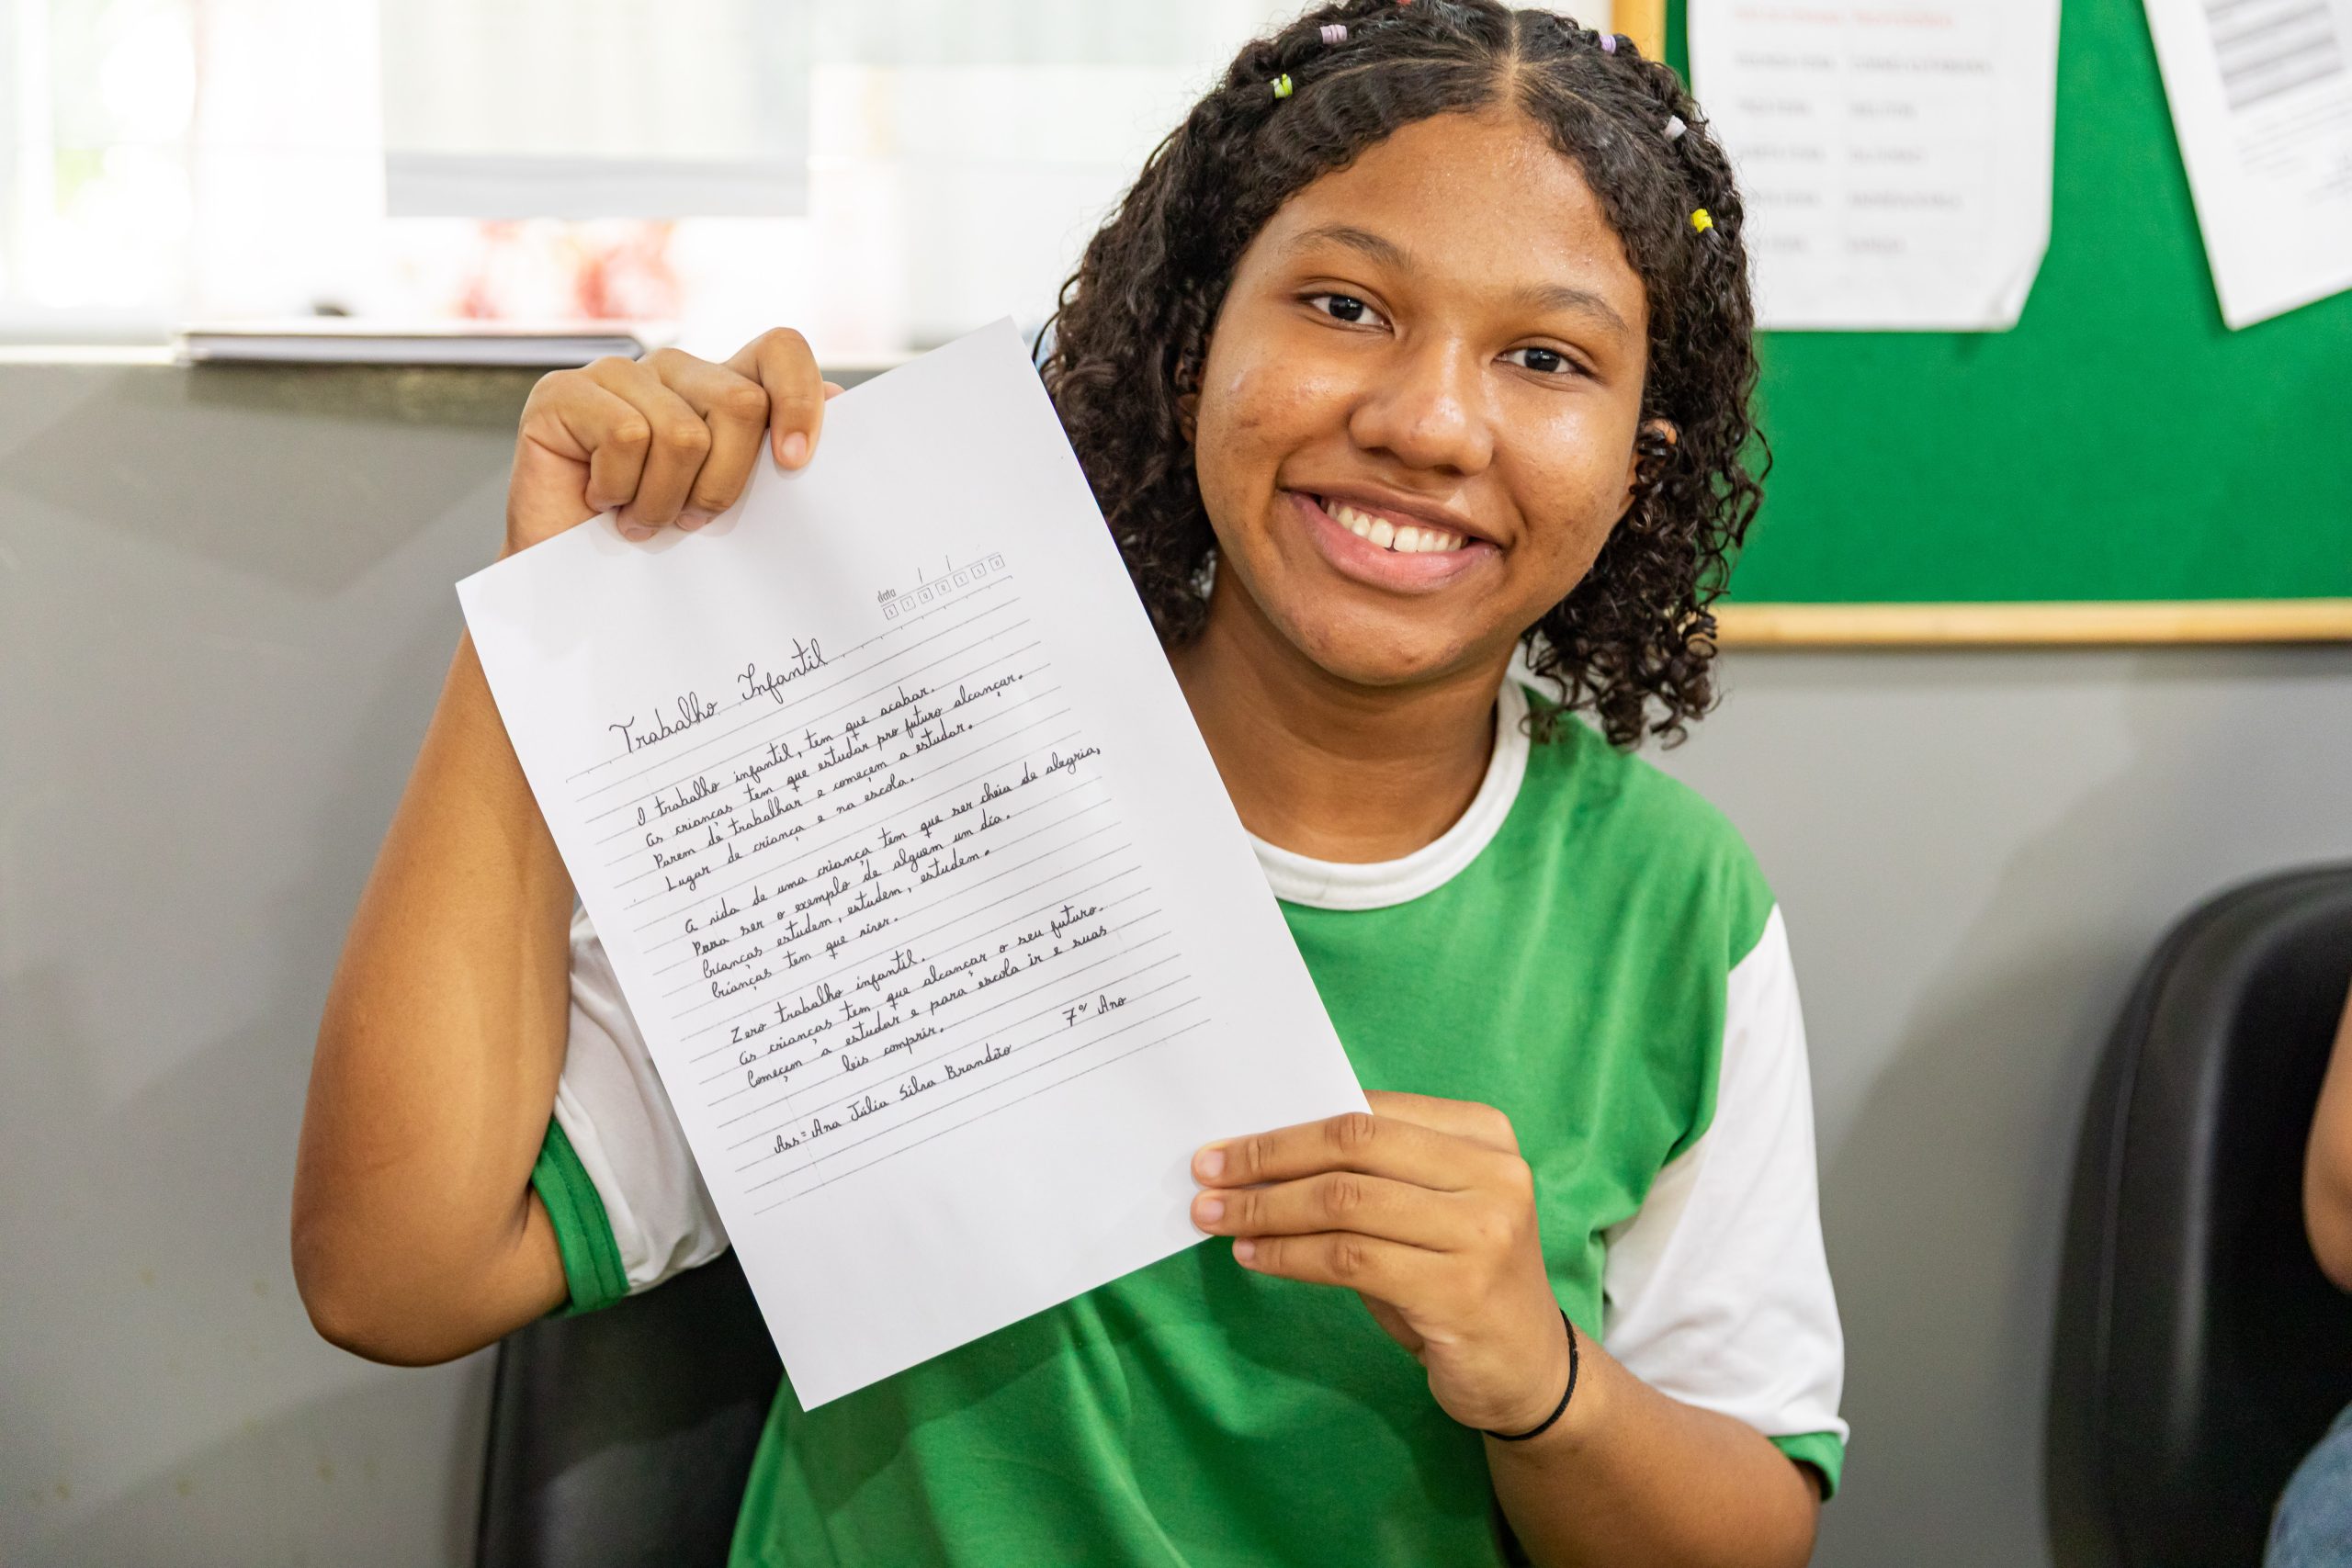 data
S T Q Q S S D
Trabalho Infantil
O trabalho infantil, tem que acabar.
As crianças tem que estudar pro futuro alcançar.
Parem de trabalhar e começem a estudar.
Lugar de criança e na escola.
A vida de uma criança tem que ser cheia de alegria,
Para ser o exemplo de alguem um dia.
Crianças estudem, estudem, estudem.
Crianças tem que viver.
Zero trabalho infantil.
As crianças tem que alcançar o seu futuro.
Começem a estudar e para escola ir e suas
leis comprir.
Ass= Ana Júlia Silva Brandão 7º Ano